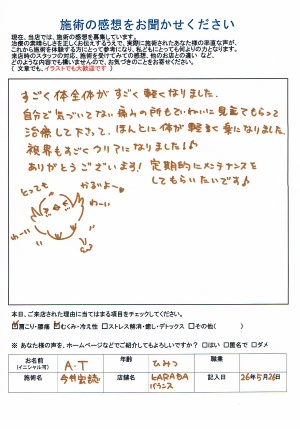 施術の感想をお聞かせください
現在、当店では、施術の感想を募集しています。
治療の素晴らしさを正しくお伝えするうえで、実際に施術されたあなた様の率直な声が、
これから施術を体験する方にとって参考になり、私どもにとっても何よりの力となります。
来店時のスタッフの対応、施術を受けてみての感想、他のお店との違い など、
どのような内容でも構いませんので、お気づきのことをお寄せください。
( 文章でも、イラストでも大歓迎です )
すごく体全体が すごく軽くなりました。
自分で気づいてない痛みの所もていねいに見直てもらって
治療して下さって、ほんとに体が軽く楽になりました!
視界もすごくクリアになりました♪
ありがとうございます! 定期的にメンテナンスを
してもらいたいです♪
とっても
かるいよー
わーい
わーい
本日、ご来店された項目に当てはまる項目をチェックしてください。
肩こり・腰痛 むくみ・冷え性 ストレス解消・癒し・デトックス その他( )
※ あなた様の声を、ホームページなどでご紹介してもよろしいですか? はい 匿名で ダメ
お名前 (イニシャル可) A.T 年齢 ひみつ 職業
施術名 店舗名 KARADAバランス 記入日 26年5月26日